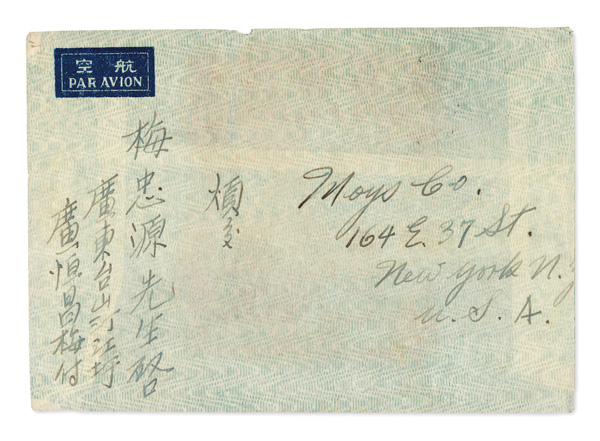 空航
PAR AVION
Moys Co.
164 E. 37 St.
New York N.Y
U. S. A.
煩交
梅忠源先生啓
廣東台山汀江圩
廣恒昌梅付